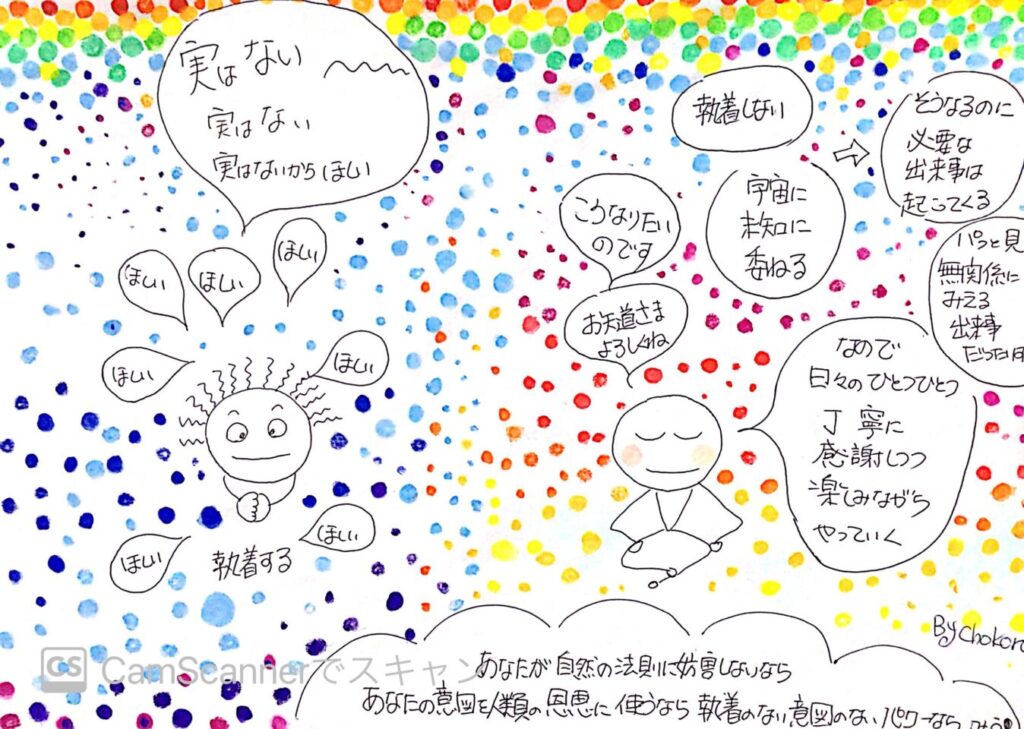 実はない
実はない
実はないからほしい
ほしい
ほしい
ほしい
ほしい
ほしい
ほしい
ほしい
執着する
執着しない
宇宙に
未知に
委ねる
そうなるのに
必要な
出来事は
起こってくる
パッと見
無関係に
みえる
出来事
だったり
こうなりたい
のです
お知道さま
よろしくね
なので
日々のひとつひとつ
丁寧に
感謝しつつ
楽しみながら
やっていく
By Chokoro
CS CamScannerでスキャン
あなたが自然の法則に妨害しないなら
あなたの意図を人類の恩恵に使うなら 執着のない意図のないパワーなら